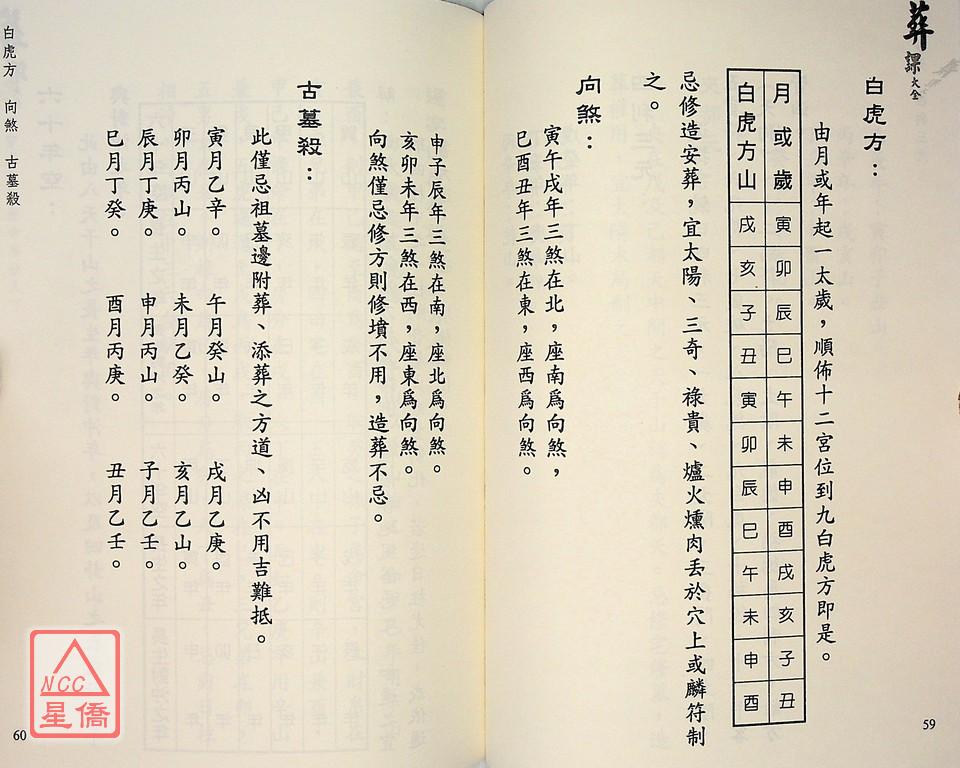 葬課大全
白虎方：
由月或年起一太歲，順佈十二宮位到九白虎方即是。
月或歲 寅 卯 辰 巳 午 未 申 酉 戌 亥 子 丑
白虎方山 戌 亥 子 丑 寅 卯 辰 巳 午 未 申 酉
忌修造安葬，宜太陽、三奇、祿貴、爐火燻肉丟於穴上或麟符制
之。
向煞：
寅午戌年三煞在北，座南爲向煞，
巳酉丑年三煞在東，座西爲向煞。
59
申子辰年三煞在南，座北爲向煞。
亥卯未年三煞在西，座東爲向煞。
向煞僅忌修方則修墳不用，造葬不忌。
古墓殺：
此僅忌祖墓邊附葬、添葬之方道、凶不用吉難抵。
寅月乙辛。 午月癸山。 戌月乙庚。
卯月丙山。 未月乙癸。 亥月乙山。
辰月丁庚。 申月丙山。 子月乙壬。
巳月丁癸。 酉月丙庚。 丑月乙壬。
白虎方 向煞 古墓殺
60
NCC
星僑